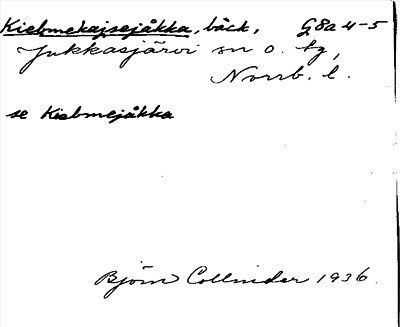 Kiebmekajsejåkka, bäck, G8a 4-5
Jukkasjärvi sn o. tg,
Norrb. l.
se Kiebmejåkka
Björn Collinder 1936.